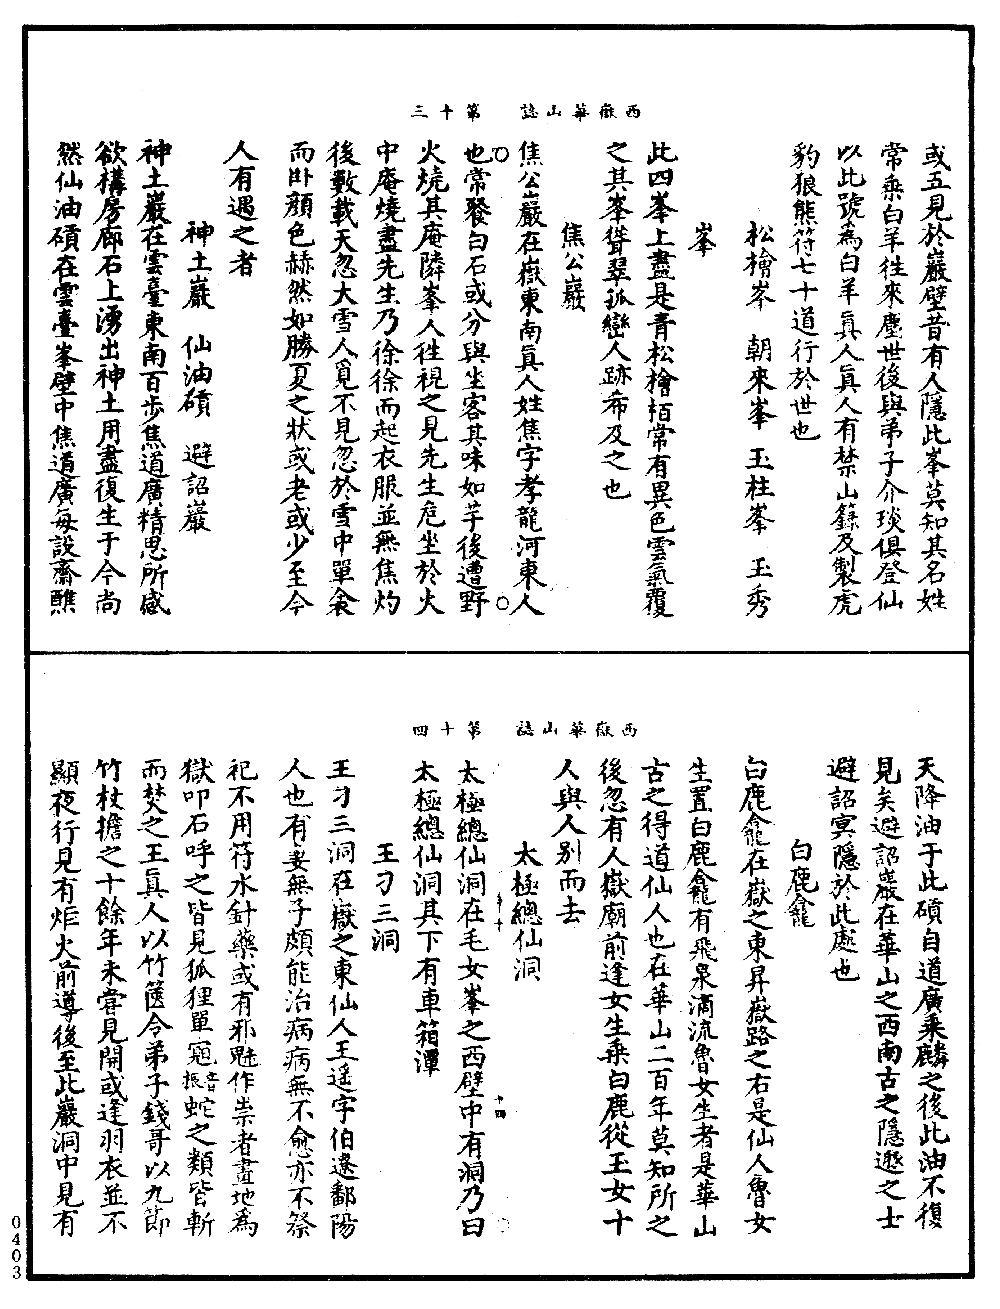 西嶽華山誌　第十三
或五見於巖壁昔有人隱此峯莫知其名姓
常乘白羊往來塵世後與弟子介琰俱登仙
以此號為白羊眞人眞人有禁山籙及製虎
豹狼熊符七十道行於世也
松檜峯　朝來峯　玉柱峯　玉秀
峯
此四峯上盡是青松檜栢常有異色雲氣覆
之其峯聳翠孤巒人跡希及之也
焦公巖
焦公巖在嶽東南眞人姓焦字孝龍河東人
也常餐白石或分與坐客其味如芋後遭野
火燒其庵隣峯人往視之見先生危坐於火
中庵燒盡先生乃徐徐而起衣服並無焦灼
後數載天忽大雪人覓不見忽於雪中單衾
而卧顏色赫然如勝夏之狀或老或少至今
人有遇之者
神土巖　仙油碩　避詔巖
神土巖在雲臺東南百步焦道廣精思所感
欲構房廊石上湧出神土用盡復生于今尚
然仙油碩在雲臺峯壁中焦道廣每設齋醮
西嶽華山誌　第十四
天降油于此碩自道廣乘麟之後此油不復
見矣避詔巖在華山之西南古之隱遯之士
避詔冥隱於此處也
白鹿龕
白鹿龕在嶽之東昇嶽路之右是仙人魯女
生置白鹿龕有飛泉滴流魯女生者是華山
古之得道仙人也在華山二百年莫知所之
後忽有人嶽廟前逢女生乘白鹿從玉女十
人與人別而去
太極總仙洞
太極總仙洞在毛女峯之西壁中有洞乃曰
太極總仙洞其下有車箱潭
王刁三洞
王刁三洞在嶽之東仙人王遥字伯遼鄱陽
人也有妻無子頗能治病病無不愈亦不祭
祀不用符水針藥或有邪魅作祟者畫地為
獄叩石呼之皆見狐狸單䖟音振蛇之類皆斬
而焚之王眞人以竹篋令弟子錢哥以九節
竹杖擔之十餘年未甞見開或逢羽衣並不
顯夜行見有炬火前導後至此巖洞中見有
十四
0403